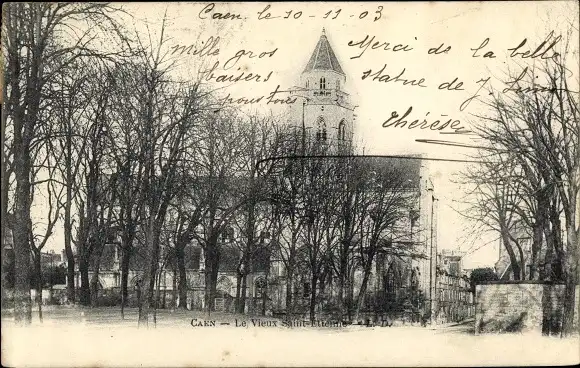 Caen le 10-11-03
mille gros
baisers
pour tous
Merci de la belle
statue de J.
Thérèse
CAEN — Le Vieux Saint-Etienne — L. D.